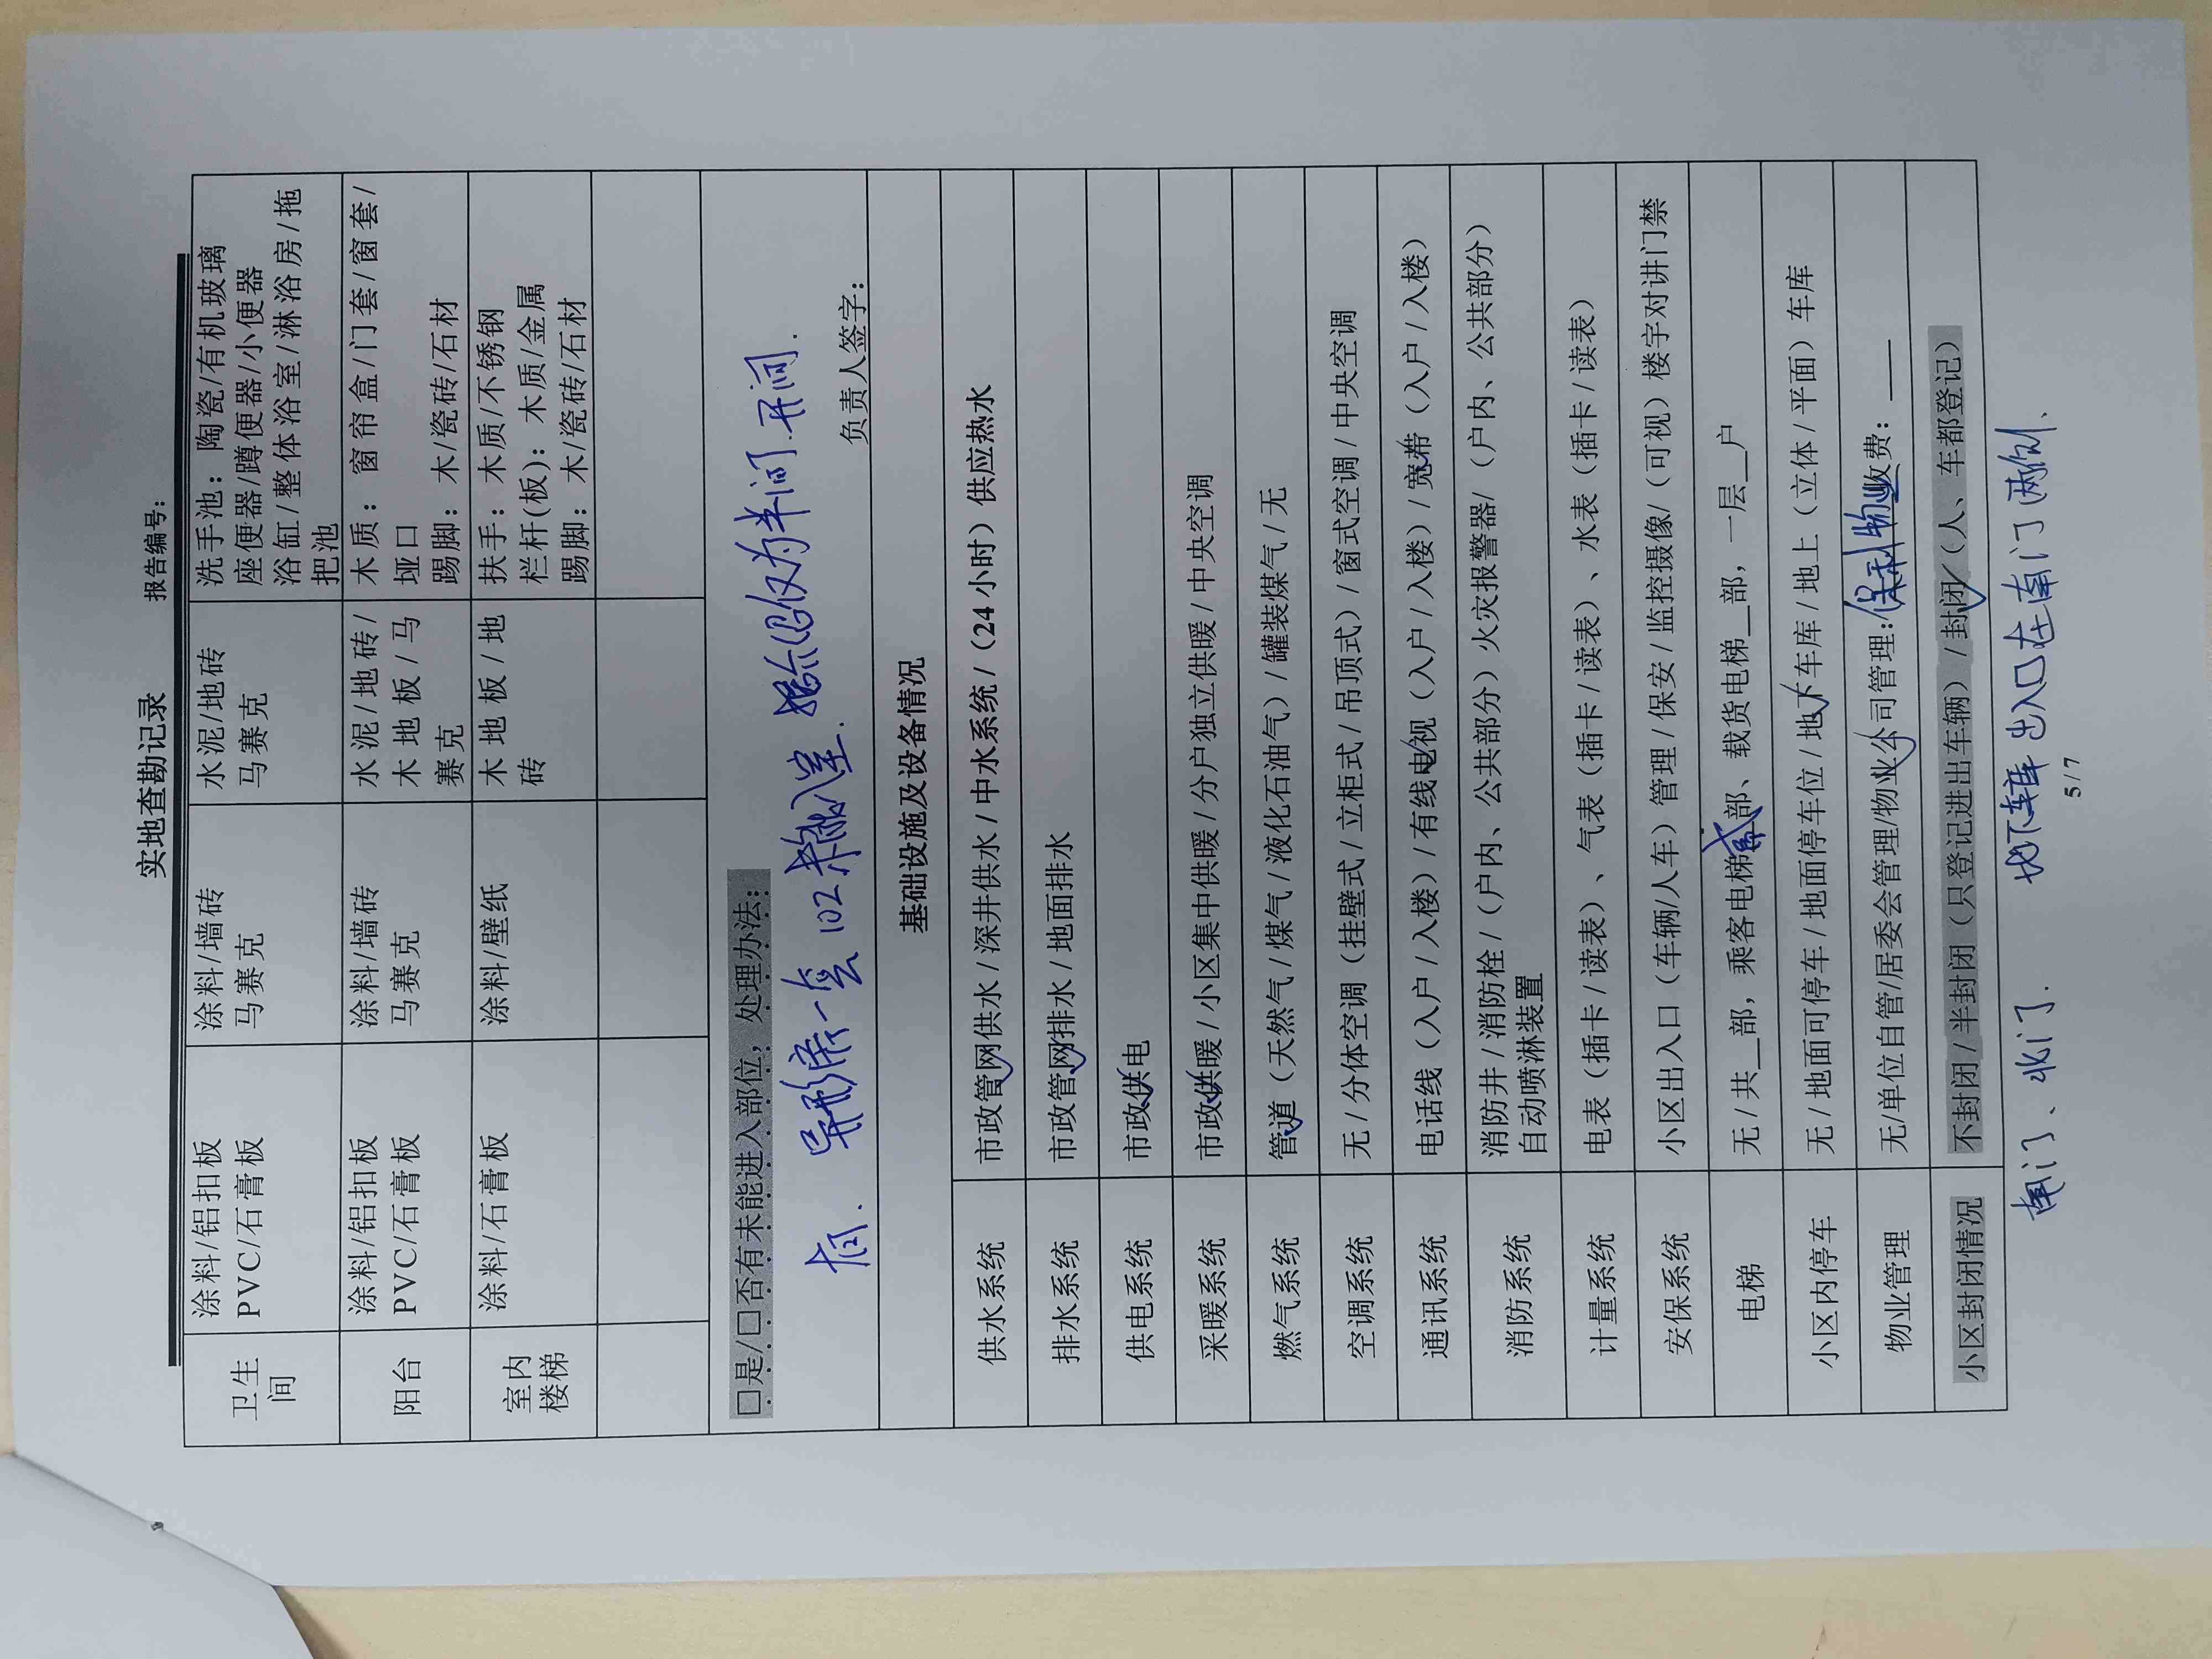 实地查勘记录
报告编号：
卫生间
涂料/铝扣板
PVC/石膏板
涂料/墙砖
马赛克
水泥/地砖
马赛克
洗手池：陶瓷/有机玻璃
座便器/蹲便器/小便器
浴缸/整体浴室/淋浴房/拖
把池
阳台
涂料/铝扣板
PVC/石膏板
涂料/墙砖
马赛克
水泥/地砖/
木地板/马
赛克
木质：窗帘盒/门套/窗套/
垭口
踢脚：木/瓷砖/石材
室内
楼梯
涂料/石膏板
涂料/壁纸
木地板/地
砖
扶手：木质/不锈钢
栏杆(板)：木质/金属
踢脚：木/瓷砖/石材
□是/□否有未能进入部位，处理办法：
102 为半间.开间.
负责人签字：
基础设施及设备情况
供水系统
市政管网供水/深井供水/中水系统/（24小时）供应热水
排水系统
市政管网排水/地面排水
供电系统
市政供电
采暖系统
市政供暖/小区集中供暖/分户独立供暖/中央空调
燃气系统
管道（天然气/煤气/液化石油气）/罐装煤气/无
空调系统
无/分体空调（挂壁式/立柜式/吊顶式）/窗式空调/中央空调
通讯系统
电话线（入户/入楼）/有线电视（入户/入楼）/宽带（入户/入楼）
消防系统
消防井/消防栓/（户内、公共部分）火灾报警器/（户内、公共部分）
自动喷淋装置
计量系统
电表（插卡/读表）、气表（插卡/读表）、水表（插卡/读表）
安保系统
小区出入口（车辆/人车）管理/保安/监控摄像/（可视）楼宇对讲门禁
电梯
无/共__部，乘客电梯贰部、载货电梯__部，一层__户
小区内停车
无/地面可停车/地面停车位/地下车库/地上（立体/平面）车库
物业管理
无/单位自管/居委会管理/物业公司管理：保利物业收费：___
小区封闭情况
不封闭/半封闭（只登记进出车辆）/封闭（人、车都登记）
南门、北门. 地下车库出入口在南门两侧.
5/7